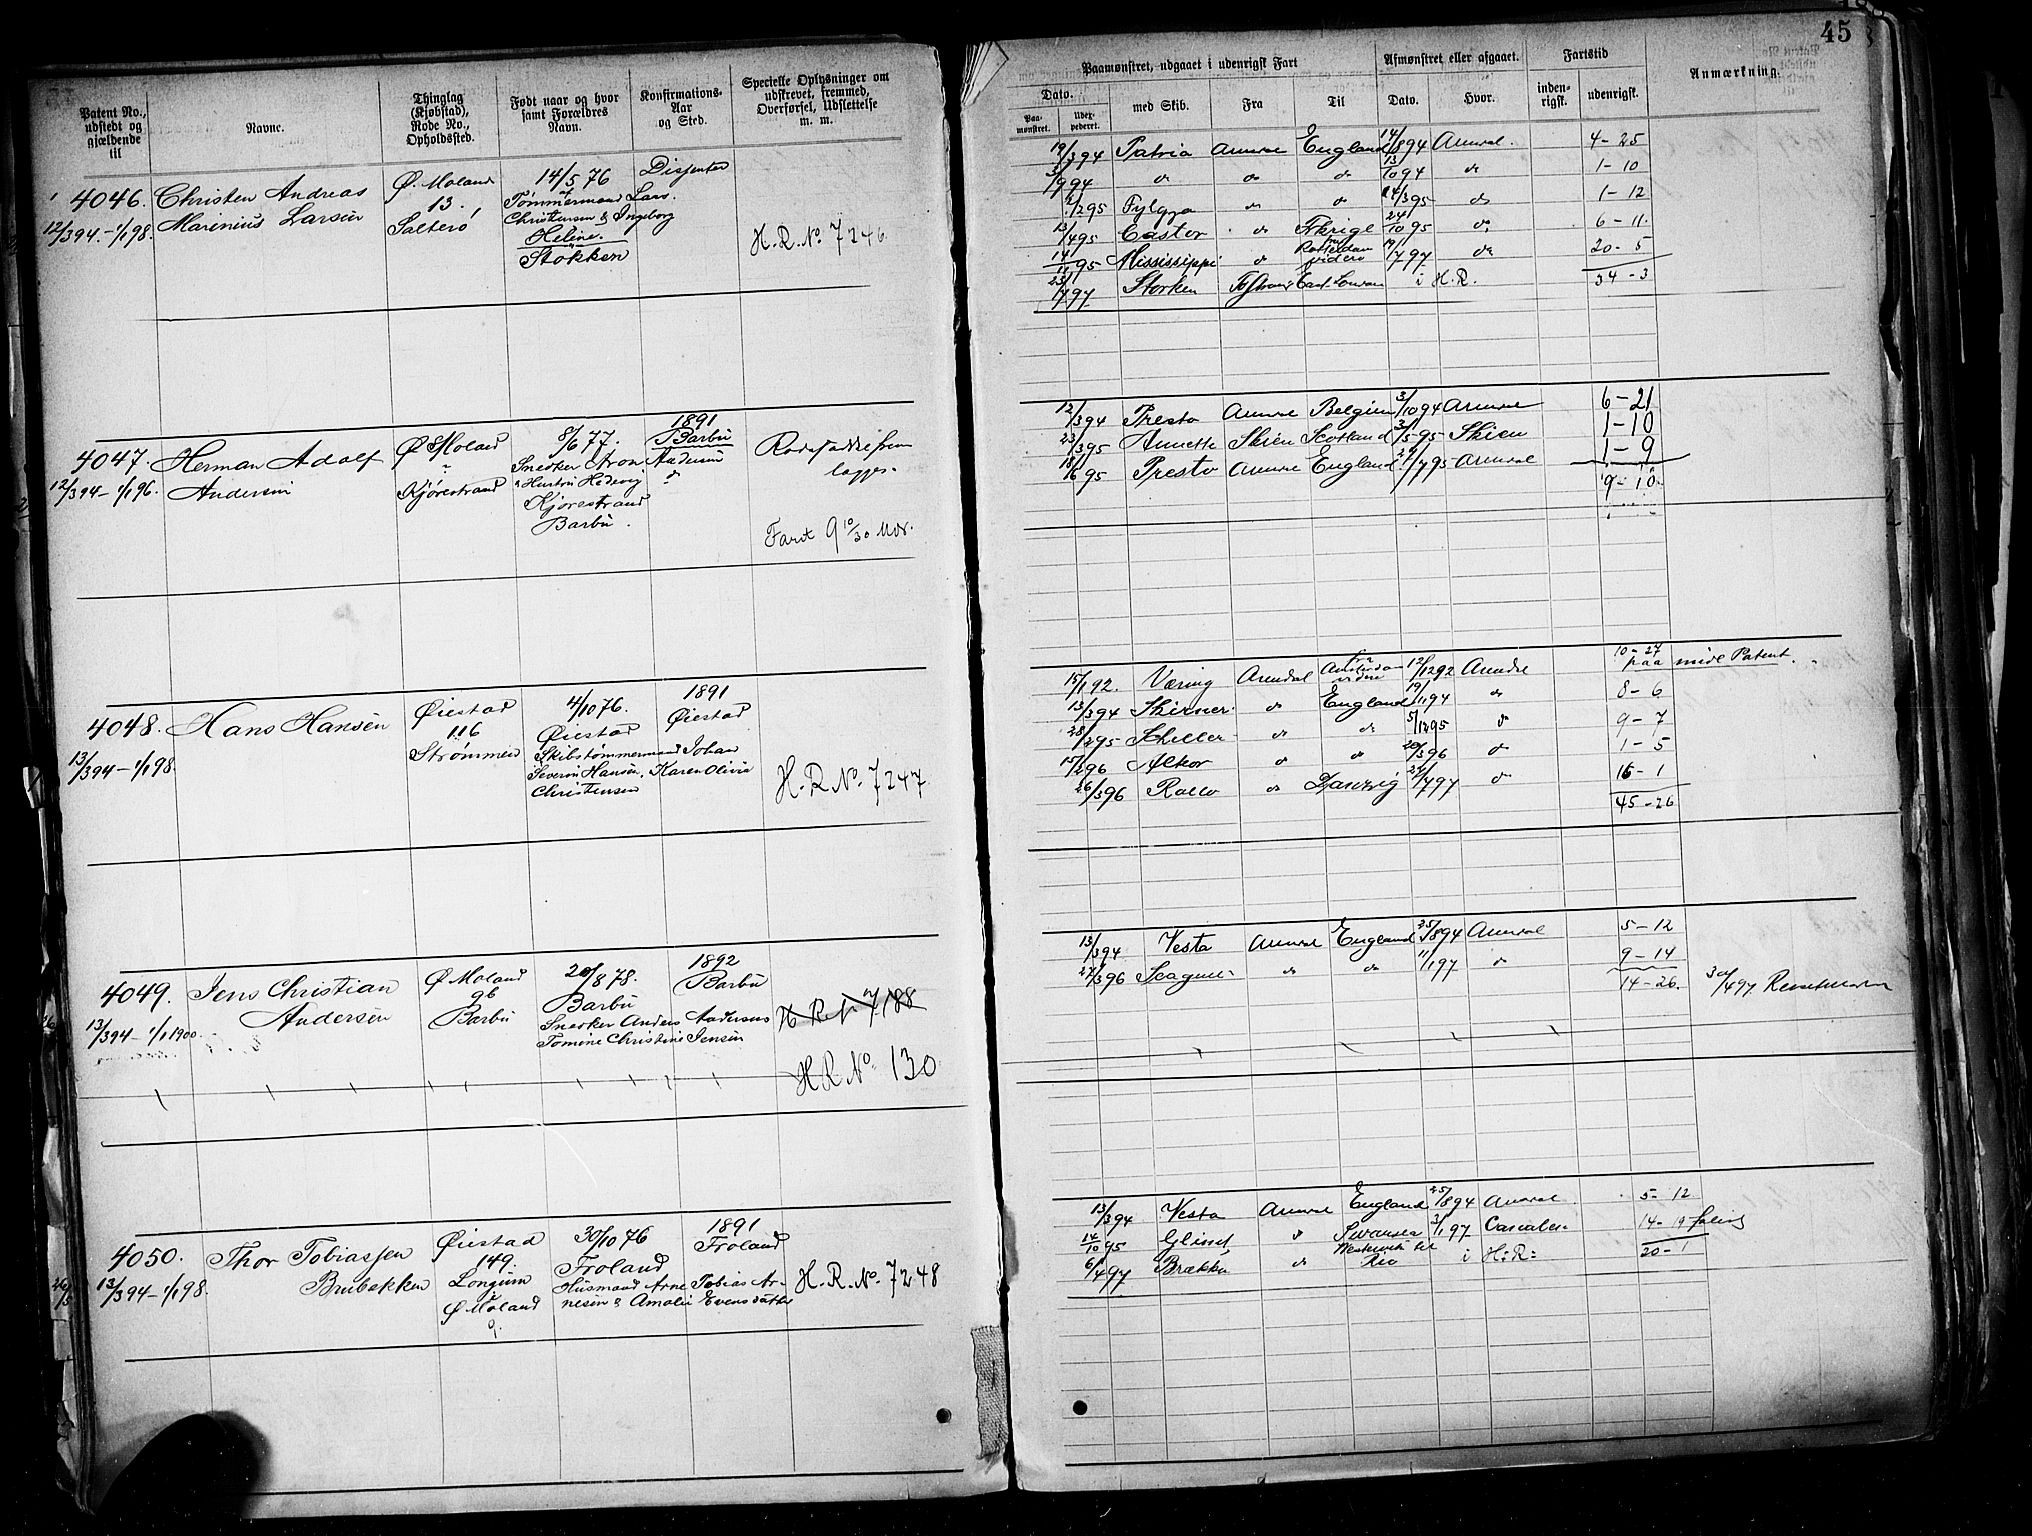 45
Patent No., udstedt og gjældende til
Navne.
Thinglag (Kjøbstad), Rode No., Opholdssted.
Født naar og hvor samt Forældres Navn.
Konfirmations-Aar og Sted.
Specielle Oplysninger om udskrevet, fremmed, Overførsel, Udslettelse m. m.
Paamønstret, udgaaet i udenrigsk Fart
Afmønstret eller afgaaet.
Fartstid
Anmærkning.
Dato.
Paa-mønstret.
Udex-pederet.
med Skib.
Fra
Til
Dato.
Hvor.
inden-rigsk.
udenrigsk.
4046. Christen Andreas Ø. Moland 14/5 76 Disjenter
12/3 94 - 1/1 98. Marinius Larsen 13. Tømmermand Lars
Salterø Christensen & Ingeborg
Heline.
Støkken
H.R. No. 7246.
19/3 94 Patria England 14/8 94 4-25
3/9 94 do do do 13/10 94 do 1-10
2/2 95 Fylgja do do 14/3 95 do 1-12
13/4 95 Castor do 24/10 95 do 6-11
14/11 95 Mississippi do Rotterdam videre 19/7 97 do 20-5
23/7 97 Storken East London i H.R. 34-3
4047. Herman Adolf Ø Moland 8/6 77. 1891
12/3 94 - 1/1 96. Andersen Kjørestrand Barbu
Snedker Aron Andersen
& Hustru Hedevig
Kjørestrand
Barbu.
Fart 9 10/30 Mdr.
12/3 94 Presto Belgien 3/10 94 6-21
23/3 95 Annette Skien Scotland 3/5 95 Skien 1-10
18/6 95 Presto England 27/7 95 1-9
9-10
4048. Hans Hansen Øiestad 4/10 76. 1891
13/3 94 - 1/1 98. 116 Øiestad Øiestad
Strømmen Skibstømmermand Johan
Severin Hansen, Karen Olivia
Christensen
H.R. No. 7247
15/1 92. Væring Arendal 12/12 92 10-27 paa midl Patent.
13/3 94 Skirner do England 19/11 94 do 8-6
28/2 95 Schiller do do 5/12 95 do 9-7
15/2 96 Alkor do do 20/3 96 do 1-5
26/3 96 Rollo do Danzig 27/7 97 do 16-1
45-26
4049. Jens Christian Ø Moland 20/8 78. 1892
13/3 94 - 1/1 1900. Andersen 96 Barbu Barbu
Barbu Snedker Anders Andersens
Tomine Christine Jensen
H R No 7188
H.R. No. 130
13/3 94 Vesta England 25/8 94 5-12
27/3 96 do do 11/1 97 do 9-14
14-26.
4050. Thor Tobiassen Øiestad 30/10 76 1891
13/3 94 - 1/1 98. Brubakken 149. Froland Froland
Longum Husmand Arne Tobias Ar-
Ø Moland nesen & Amalie Evensdatter
9.
H.R. No. 7248
13/3 94 Vesta England 25/8 94 5-12
14/10 95 do Swansea 3/1 97 14-19
6/4 97 Brække do Rio i H.R: 20-1